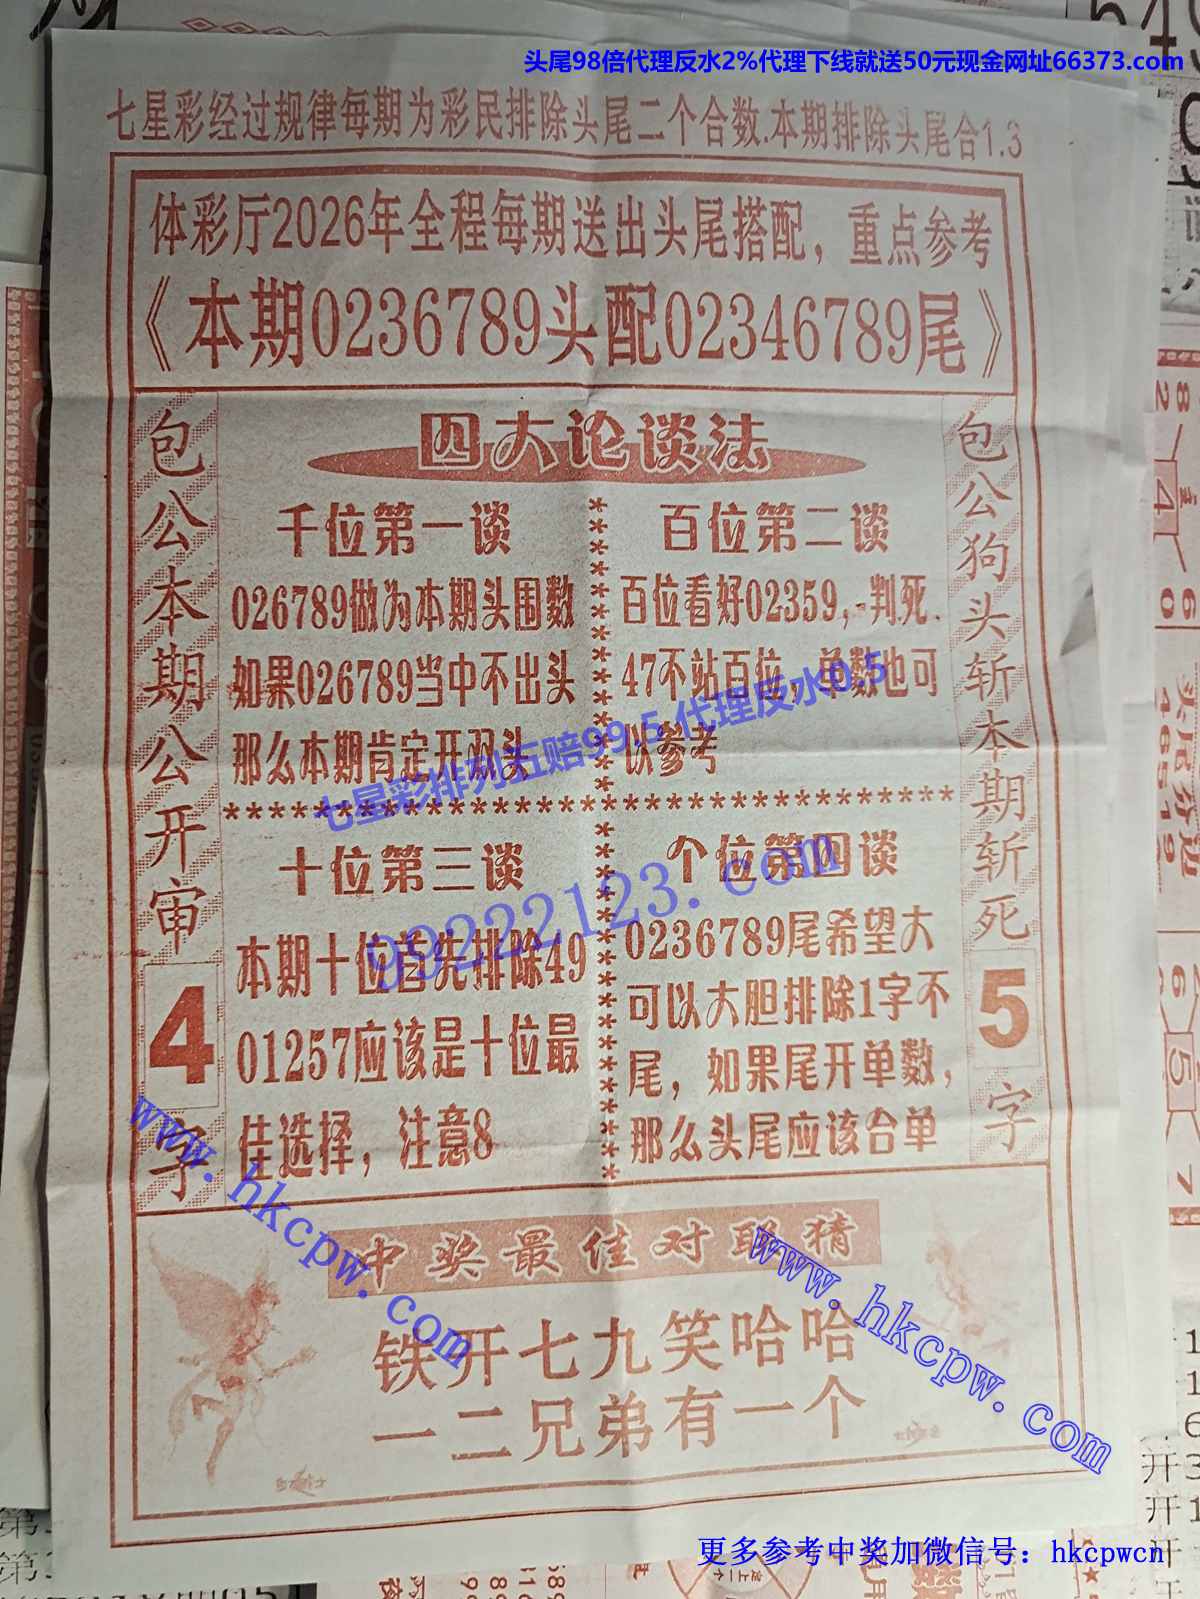 头尾98倍代理反水2%代理下线就送50元现金网址66373.com
七星彩经过规律每期为彩民排除头尾二个合数.本期排除头尾合1.3
体彩厅2026年全程每期送出头尾搭配，重点参考
《本期0236789头配02346789尾》
包公本期公开审4字
四大论谈法
千位第一谈
026789做为本期头围数
如果026789当中不出头
那么本期肯定开双头
百位第二谈
百位看好02359，判死.
47不站百位，单数也可
以参考
七星彩排列五赔99.5.代理反水0.5
99222123.com
十位第三谈
本期十位首先排除49
01257应该是十位最
佳选择，注意8
个位第四谈
0236789尾希望大
可以大胆排除1字不
尾，如果尾开单数，
那么头尾应该合单
包公狗头斩本期斩死5字
www.hkcpw.com
www.hkcpw.com
中奖最佳对联猜
铁开七九笑哈哈
一二兄弟有一个
更多参考中奖加微信号：hkcpwcn